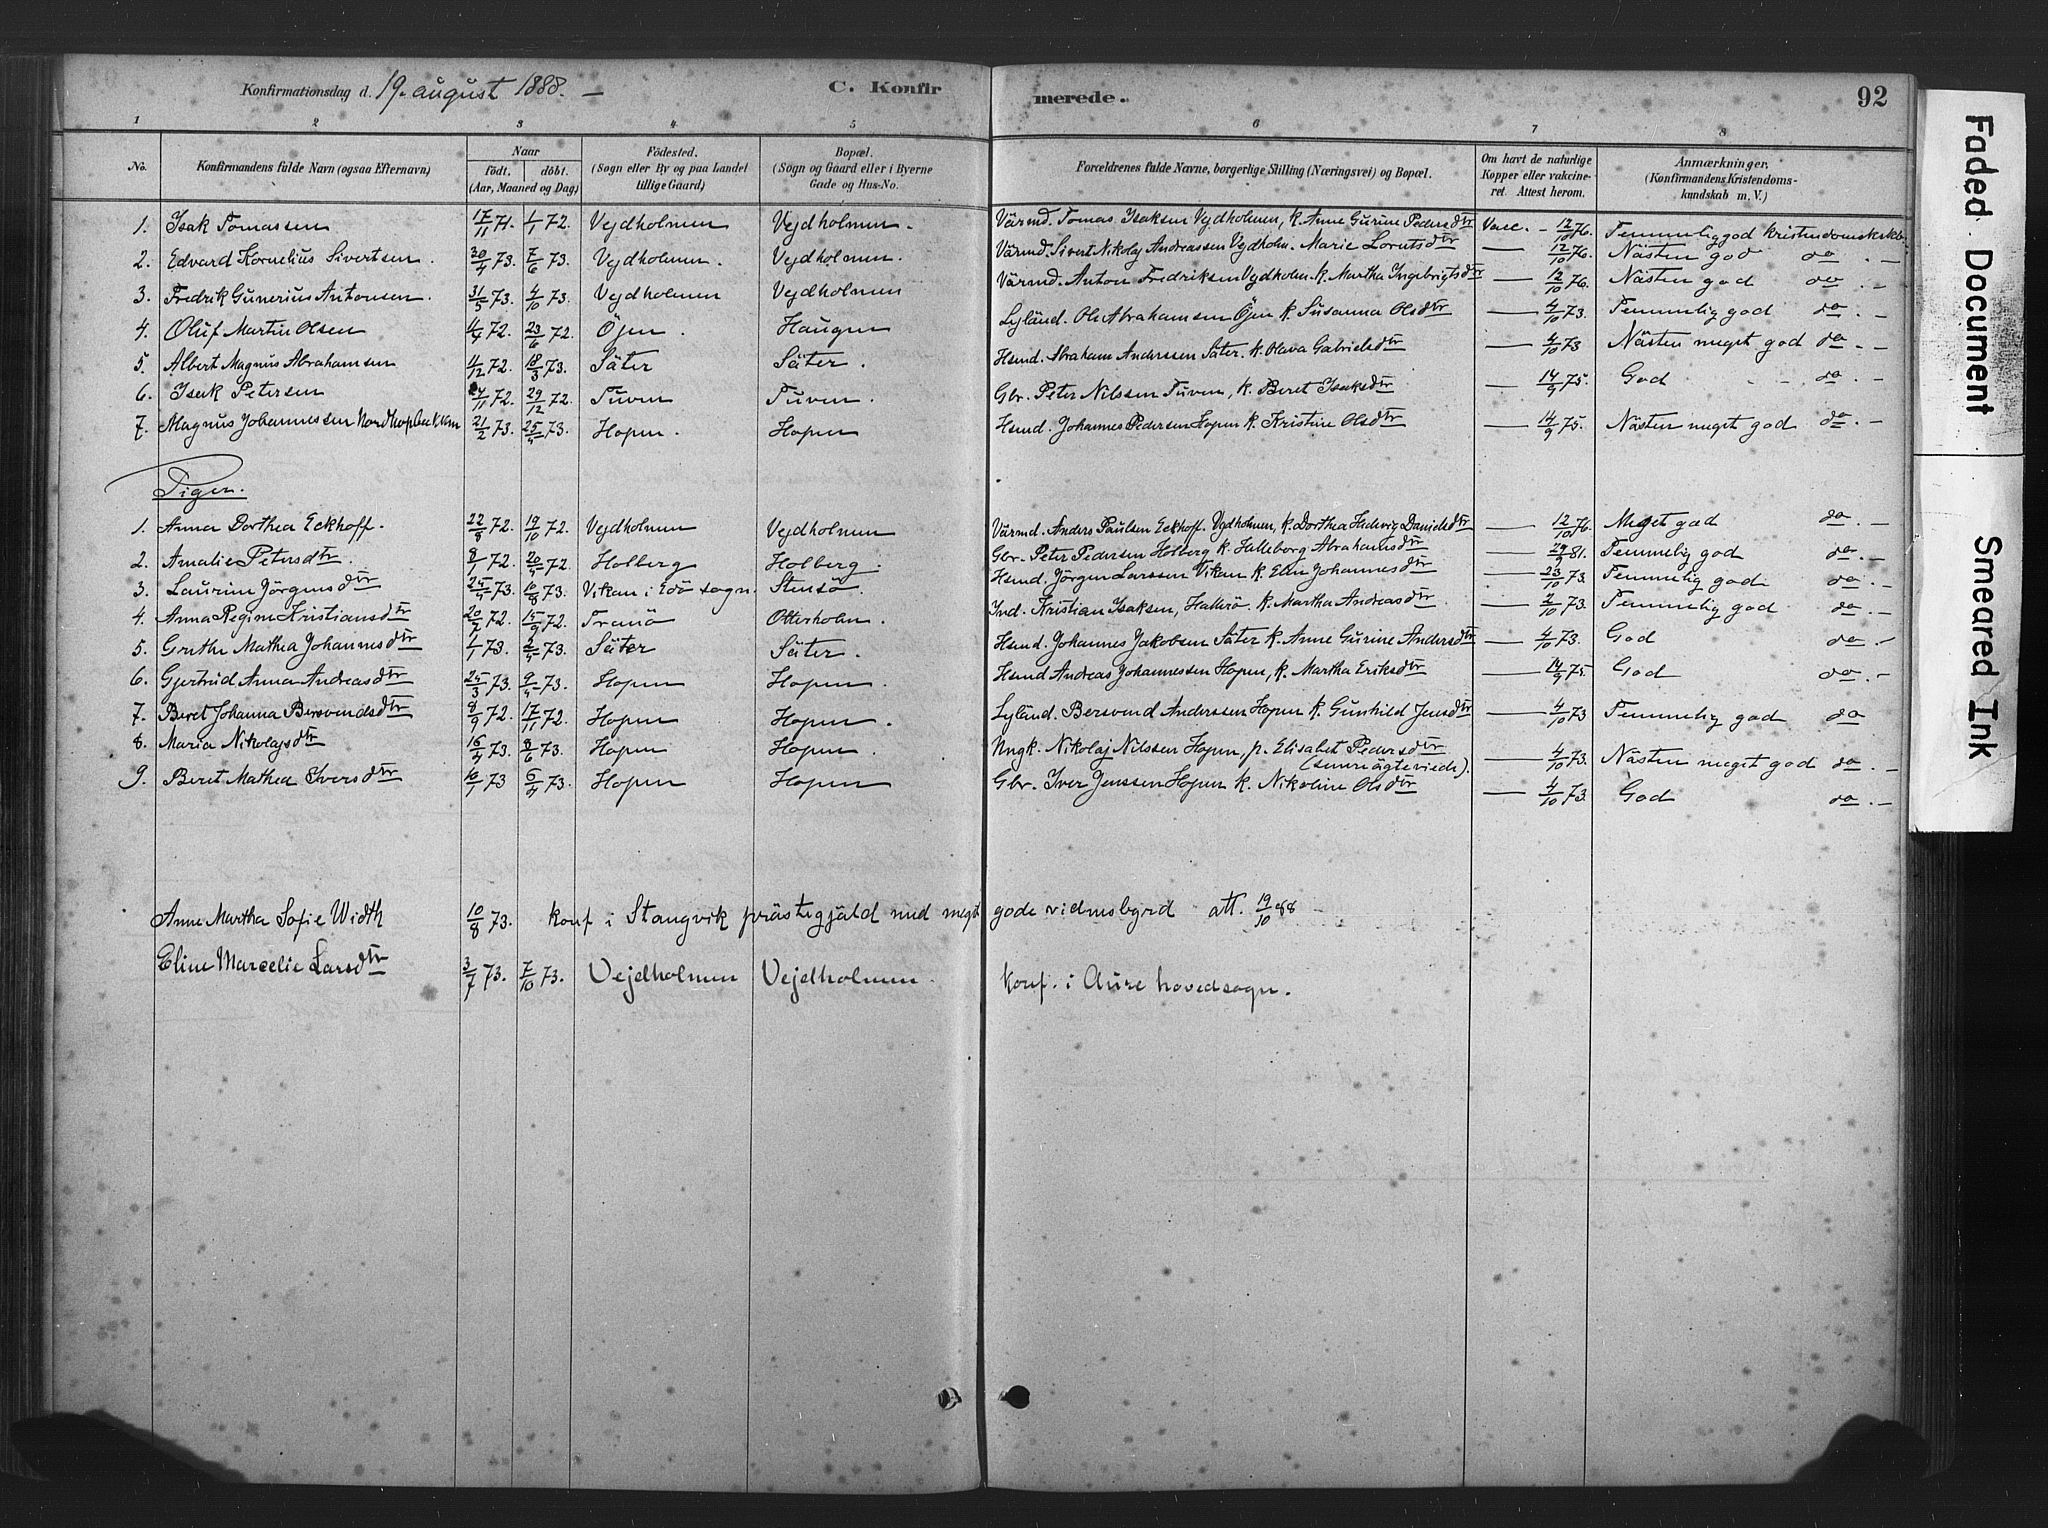 Konfirmationsdag d. 19. august 1888. —
C. Konfir merede.
92
1 2 3 4 5 6 7 8
No.
Konfirmandens fulde Navn (ogsaa Efternavn)
Naar
födt. döbt.
(Aar, Maaned og Dag)
Födested.
(Sogn eller By og paa Landet
tillige Gaard)
Bopæl.
(Sogn og Gaard eller i Byerne
Gade og Hus-No.
Forældrenes fulde Navne, borgerlige Stilling (Næringsvei) og Bopæl.
Om havt de naturlige
Kopper eller vakcine-
ret. Attest herom.
Anmærkninger.
(Konfirmandens Kristendoms-
kundskab m. V.)
1. Isak Tomassen 17/11 71. 1/1 72. Vejdholmen Vejdholmen. Värmd. Tomas Isaksen Vejdholmen, k. Anne Gurine Pedersdtr Vacc. - 12/10 76. Temmelig god kristendomskskb.
2. Edvard Kornelius Sivertsen. 30/4 73. 7/6 73. Vejdholmen. Vejdholmen. Värmd. Sivert Nikolaj Andreassen Vejdholm. Marie Lorntsdtr — 12/10 76. Nästen god do. —
3. Fredrik Gunerius Antonsen. 31/5 73. 4/10 73. Vejdholmen Vejdholmen Värmd. Anton Fredriksen Vejdholm. k. Martha Ingebrigtsdtr — 12/10 76. Nästen god do. —
4. Oluf Martin Olsen 4/4 72. 23/6 72. Öjen. Haugen Lyländ. Ole Abrahamsen Öjen k. Susanna Olsdtr — 4/10 73. Temmelig god do. —
5. Albert Magnus Abrahamsen 11/12 72. 18/3 73. Säter Säter. Hsmd. Abraham Anderssen Säter. k. Olava Gabrielsdtr — 4/10 73 Nästen meget god do. —
6. Isak Petersen 24/11 72. 29/12 72. Tuven Tuven. Gbr. Peter Nilssen Tuven, k. Beret Isaksdtr — 14/9 75. God do. —
7. Magnus Johannessen Nordhopbækken 21/2 73. 25/4 73. Hopen. Hopen Hsmd. Johannes Pedersen Hopen k. Kristine Olsdtr — 14/9 75. Nästen meget god do. —
Piger.
1. Anna Dorthea Eckhoff. 22/8 72. 19/10 72. Vejdholmen Vejdholmen Värmd. Anders Paulsen Eckhoff. Vejdholmen, k. Dorthea Hedvig Danielsdtr — 12/10 76. Meget god do. —
2. Amalie Petersdtr. 8/1 72. 20/4 72. Holberg Holberg. Gbr. Peter Pedersen Holberg k. Halleborg Abrahamsdtr — 29/9 81. Temmelig god do. —
3. Laurine Jörgensdtr 25/4 73. 10/8 73. Vikan i Edö sogn. Stensö. Hsmd. Jörgen Larssen Vikan k. Elen Johannesdtr — 23/10 73. Temmelig god do. —
4. Anna Regine Kristiansdtr 20/7 72. 15/9 72. Tranö Otterholm. Ind. Kristian Isaksen, Hallerö k. Martha Andreasdtr — 2/10 73. Temmelig god do. —
5. Gruthe Mathea Johannesdtr 1/1 73. 2/4 73. Säter Säter. Hsmd. Johannes Jakobsen Säter k. Anne Gurine Andersdtr — 4/10 73. God do. —
6. Gjertrud Anna Andreasdtr 25/3 73. 9/4 73. Hopen Hopen. Hsmd Andreas Johannessen Hopen, k. Martha Eriksdtr — 14/9 75. God do. —
7. Beret Johanna Bersvendsdtr 8/9 72. 17/11 72. Hopen Hopen. Lyländ. Bersvend Anderssen Hopen k. Gunhild Jensdtr — 4/10 73 Temmelig god do
8. Maria Nikolajsdtr 16/4 73. 8/6 73. Hopen Hopen. Ungk. Nikolaj Nilssen Hopen, p. Elisabet Pedersdtr (senere ägteviede). — 4/10 73. Nästen meget god do. —
9. Beret Mathea Iversdtr 10/1 73 6/4 73. Hopen Hopen Gbr. Iver Jenssen Hopen k. Nikoline Olsdtr — 4/10 73. God do. —
Anne Martha Sofie Width 10/8 73. konf i Stangvik prästegjäld med meget gode vidnesbyrd att. 19/10 88
Eline Marcelie Larsdtr 3/7 73. 7/10 73. Vejdholmen Vejdholmen. konf. i Aure hovedsogn.
Faded Document
Smeared Ink